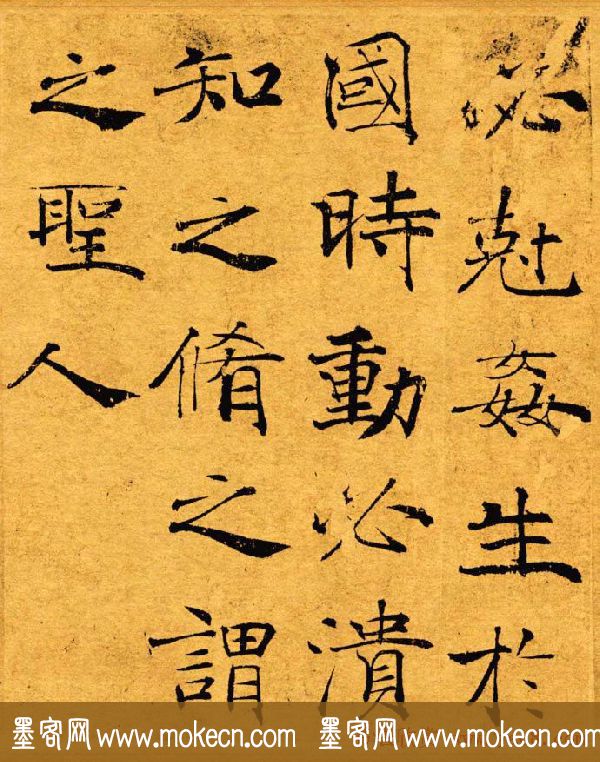 必尅姦生於
國時動必潰
知之脩之謂
之聖人
墨客网 www.mokecn.com 墨客网 www.mokecn.com